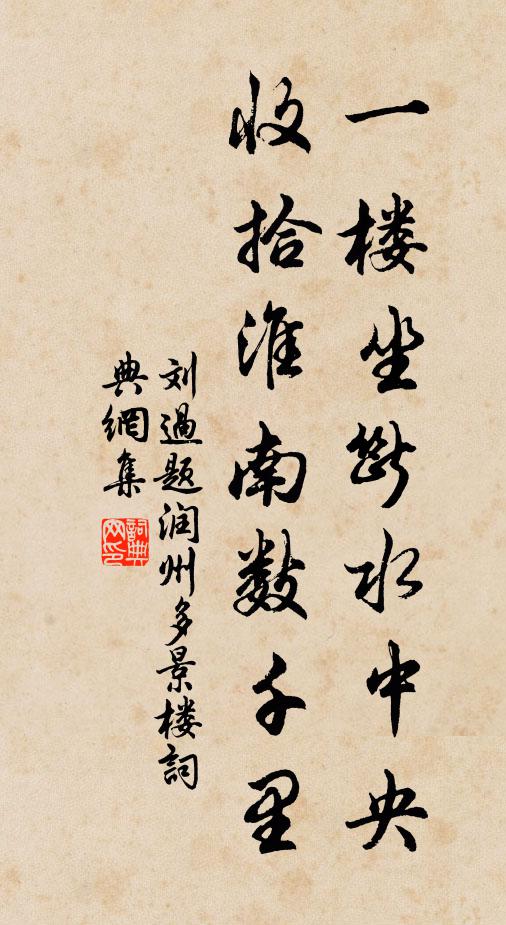 一楼坐断水中央
收拾淮南数千里
刘過题润州多景楼詞
典網集
詞典網印